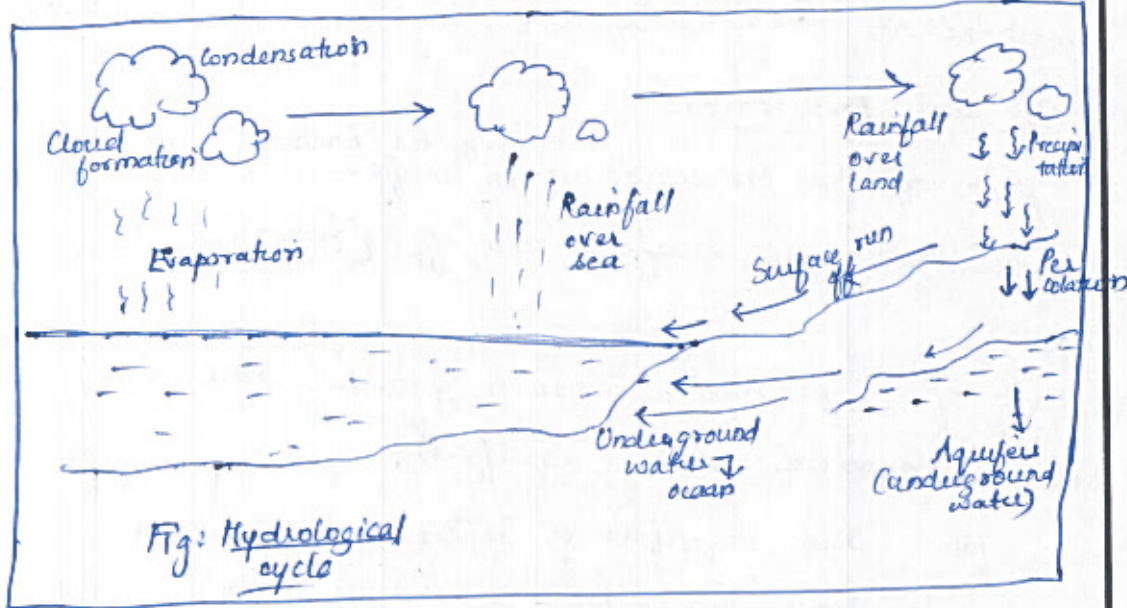 Condensation
Cloud
formation
Evaporation
Rainfall
over
sea
Rainfall
over
land
Precipi
tation
Surface run
off
Per
colation
Underground
water →
ocean
Aquifers
(underground
water)
Fig: Hydrological
cycle